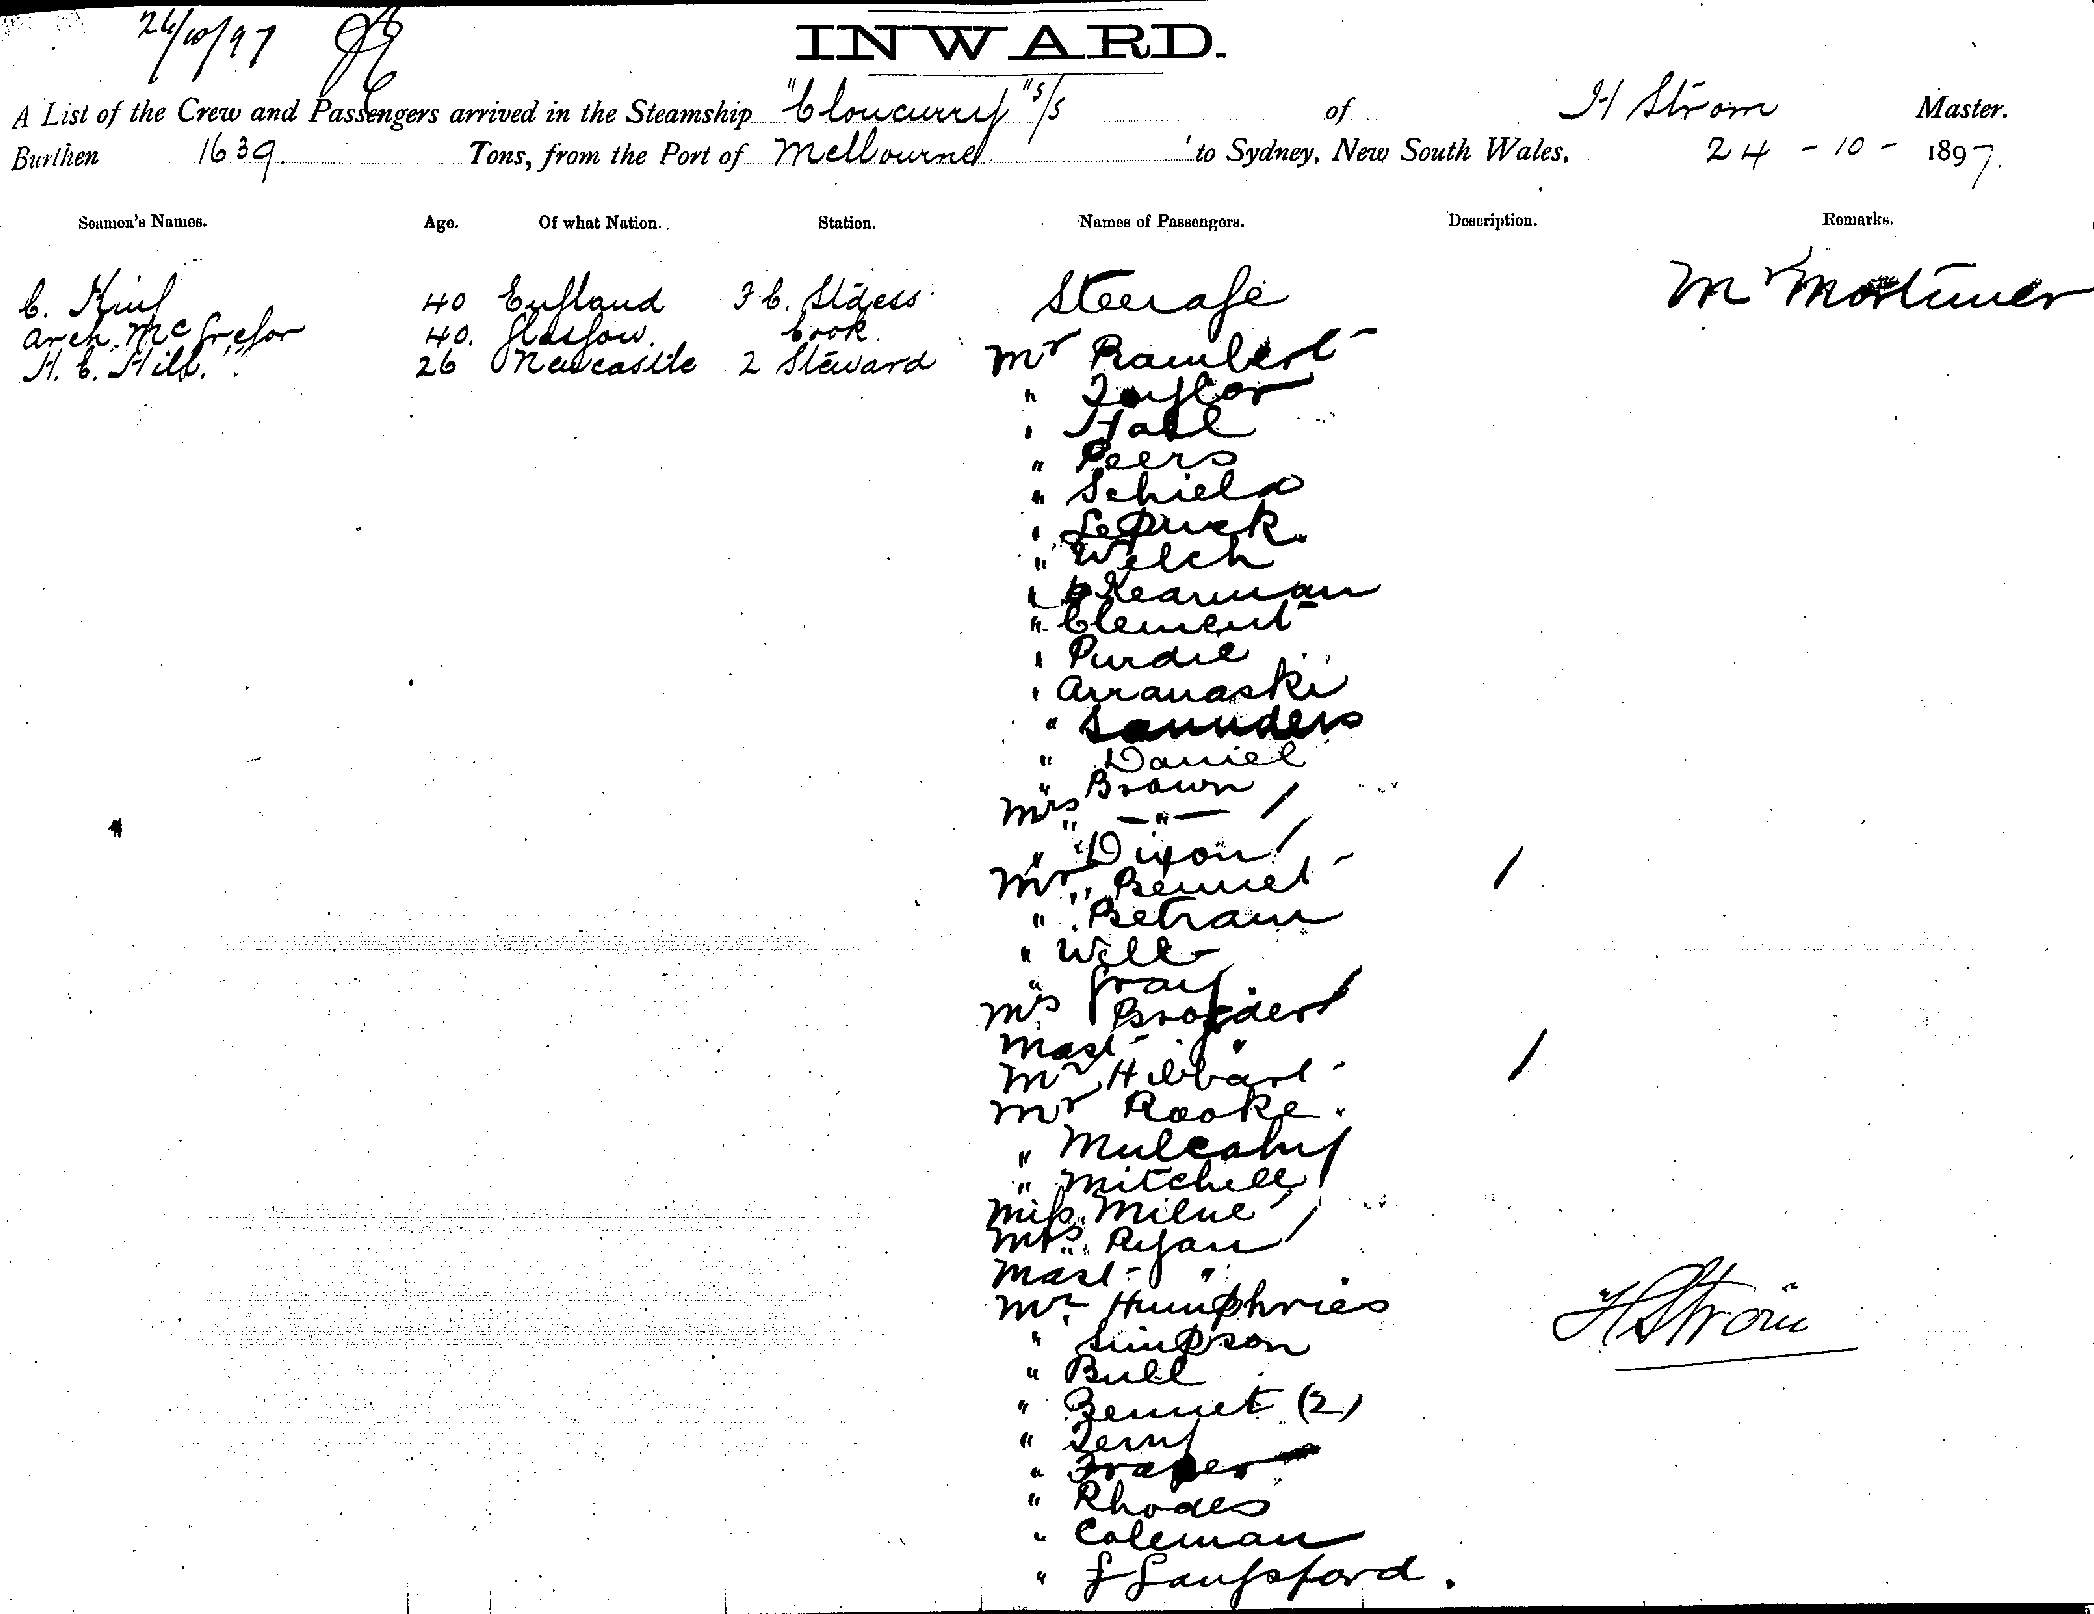 26/10/97
INWARD.
A List of the Crew and Passengers arrived in the Steamship "Cloncurry" s/s of H Strom Master.
Burthen 1639. Tons, from the Port of Melbourne to Sydney, New South Wales, 24 - 10 - 1897.
Seamen's Names. Age. Of what Nation. Station. Names of Passengers. Description. Remarks.
C. King 40 England F C. Stdess. Steerage Mr Mortimer
Arch. McGregor 40. Glasgow. Cook.
H. C. Hill. " 26 Newcastle 2 Steward Mr Rambert
" Taylor
" Hall
" Peers
" Schield
" Le Duck.
" Welch
" Kearman
" Clement
" Purdie
" Arranaski
" Saunders
" Daniel
" Brown
Mrs " — " — /
" Dixon /
Mr " Bennet /
" Betram
" Will
" Gray
Mrs Brogden /
Mast - "
Mr Hibbart /
Mr Rooke.
" Mulcahy
" Mitchell
Miss Milne /
Mrs " Ryan /
Mast - "
Mr Humphries
" Simpson
" Bull
" Bennet (2)
" Terry
" Fraser
" Rhodes
" Coleman
" Langsford.
H Strom